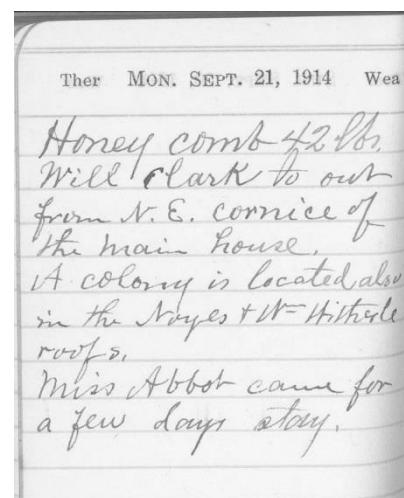 Ther MON. SEPT. 21, 1914 Wea
Honey comb 42 lbs.
Will Clark to out
from N. E. cornice of
the main house.
A colony is located also
in the Noyes + Wm Hitherle
roofs.
Miss Abbot came for
a few days stay.